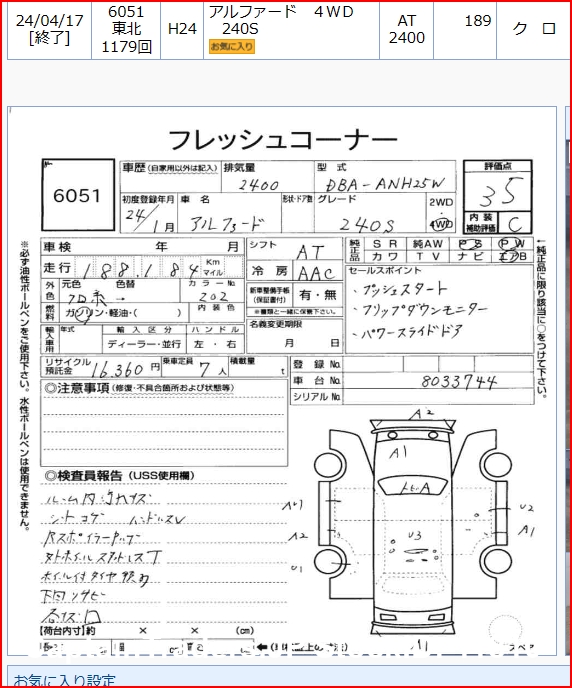 24/04/17
[終了]
6051
東北
1179回
H24
アルファード　４ＷＤ
240S
お気に入り
AT
2400
189
ク　ロ
フレッシュコーナー
6051
車歴 (自家用以外は記入)
排気量
2400
型式
DBA-ANH25W
評価点
3.5
初度登録年月
24年 1月
車名
アルファード
形状・ドア数
グレード
240S
2WD
4WD
内装
補助評価
C
車検 年 月
走行 188,184 Km マイル
シフト
AT
純正品
SR 純AW PS PW
カワ TV ナビ エアB
外色
元色 色替
カラーNo
202
冷房
AAC
セールスポイント
・プッシュスタート
・フリップダウンモニター
・パワースライドドア
燃料
ガソリン・軽油・( )
内装色
新車整備手帳
(保証書付)
有・無
※種類と一緒に保管下さい。
輸入車用
年式
輸入区分
ハンドル
ディーラー・並行
左・右
名義変更期限
月 日
リサイクル
預託金
16,360円
乗車定員
7人
積載量
t
登録No.
車台No.
8033744
シリアルNo.
◎注意事項 (修復・不具合箇所および状態等)
◎検査員報告 (USS使用欄)
ルーム内汚れキズ
シートコゲ ハンドルスレ
下回りサビ
【荷台内寸】約 × × (cm)
A2
A1
U3
U2
A1
A2
U1
A1
スペア
※必ず油性ボールペンをご使用下さい。水性ボールペンは使用できません。
←純正品に限り該当に○をつけて下さい。
お気に入り設定